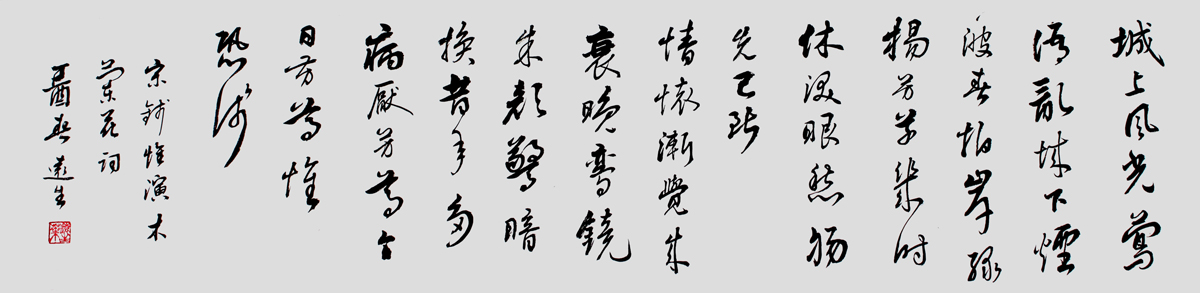 城上風光鶯
語亂城下煙
波春拍岸綠
楊芳草幾時
休淚眼愁腸
先已斷
情懷漸覺成
衰晚鸞鏡
朱顏驚暗
換昔年多
病厭芳尊今
日芳尊惟
恐淺
宋錢惟演木
蘭花詞
丁酉春遠生